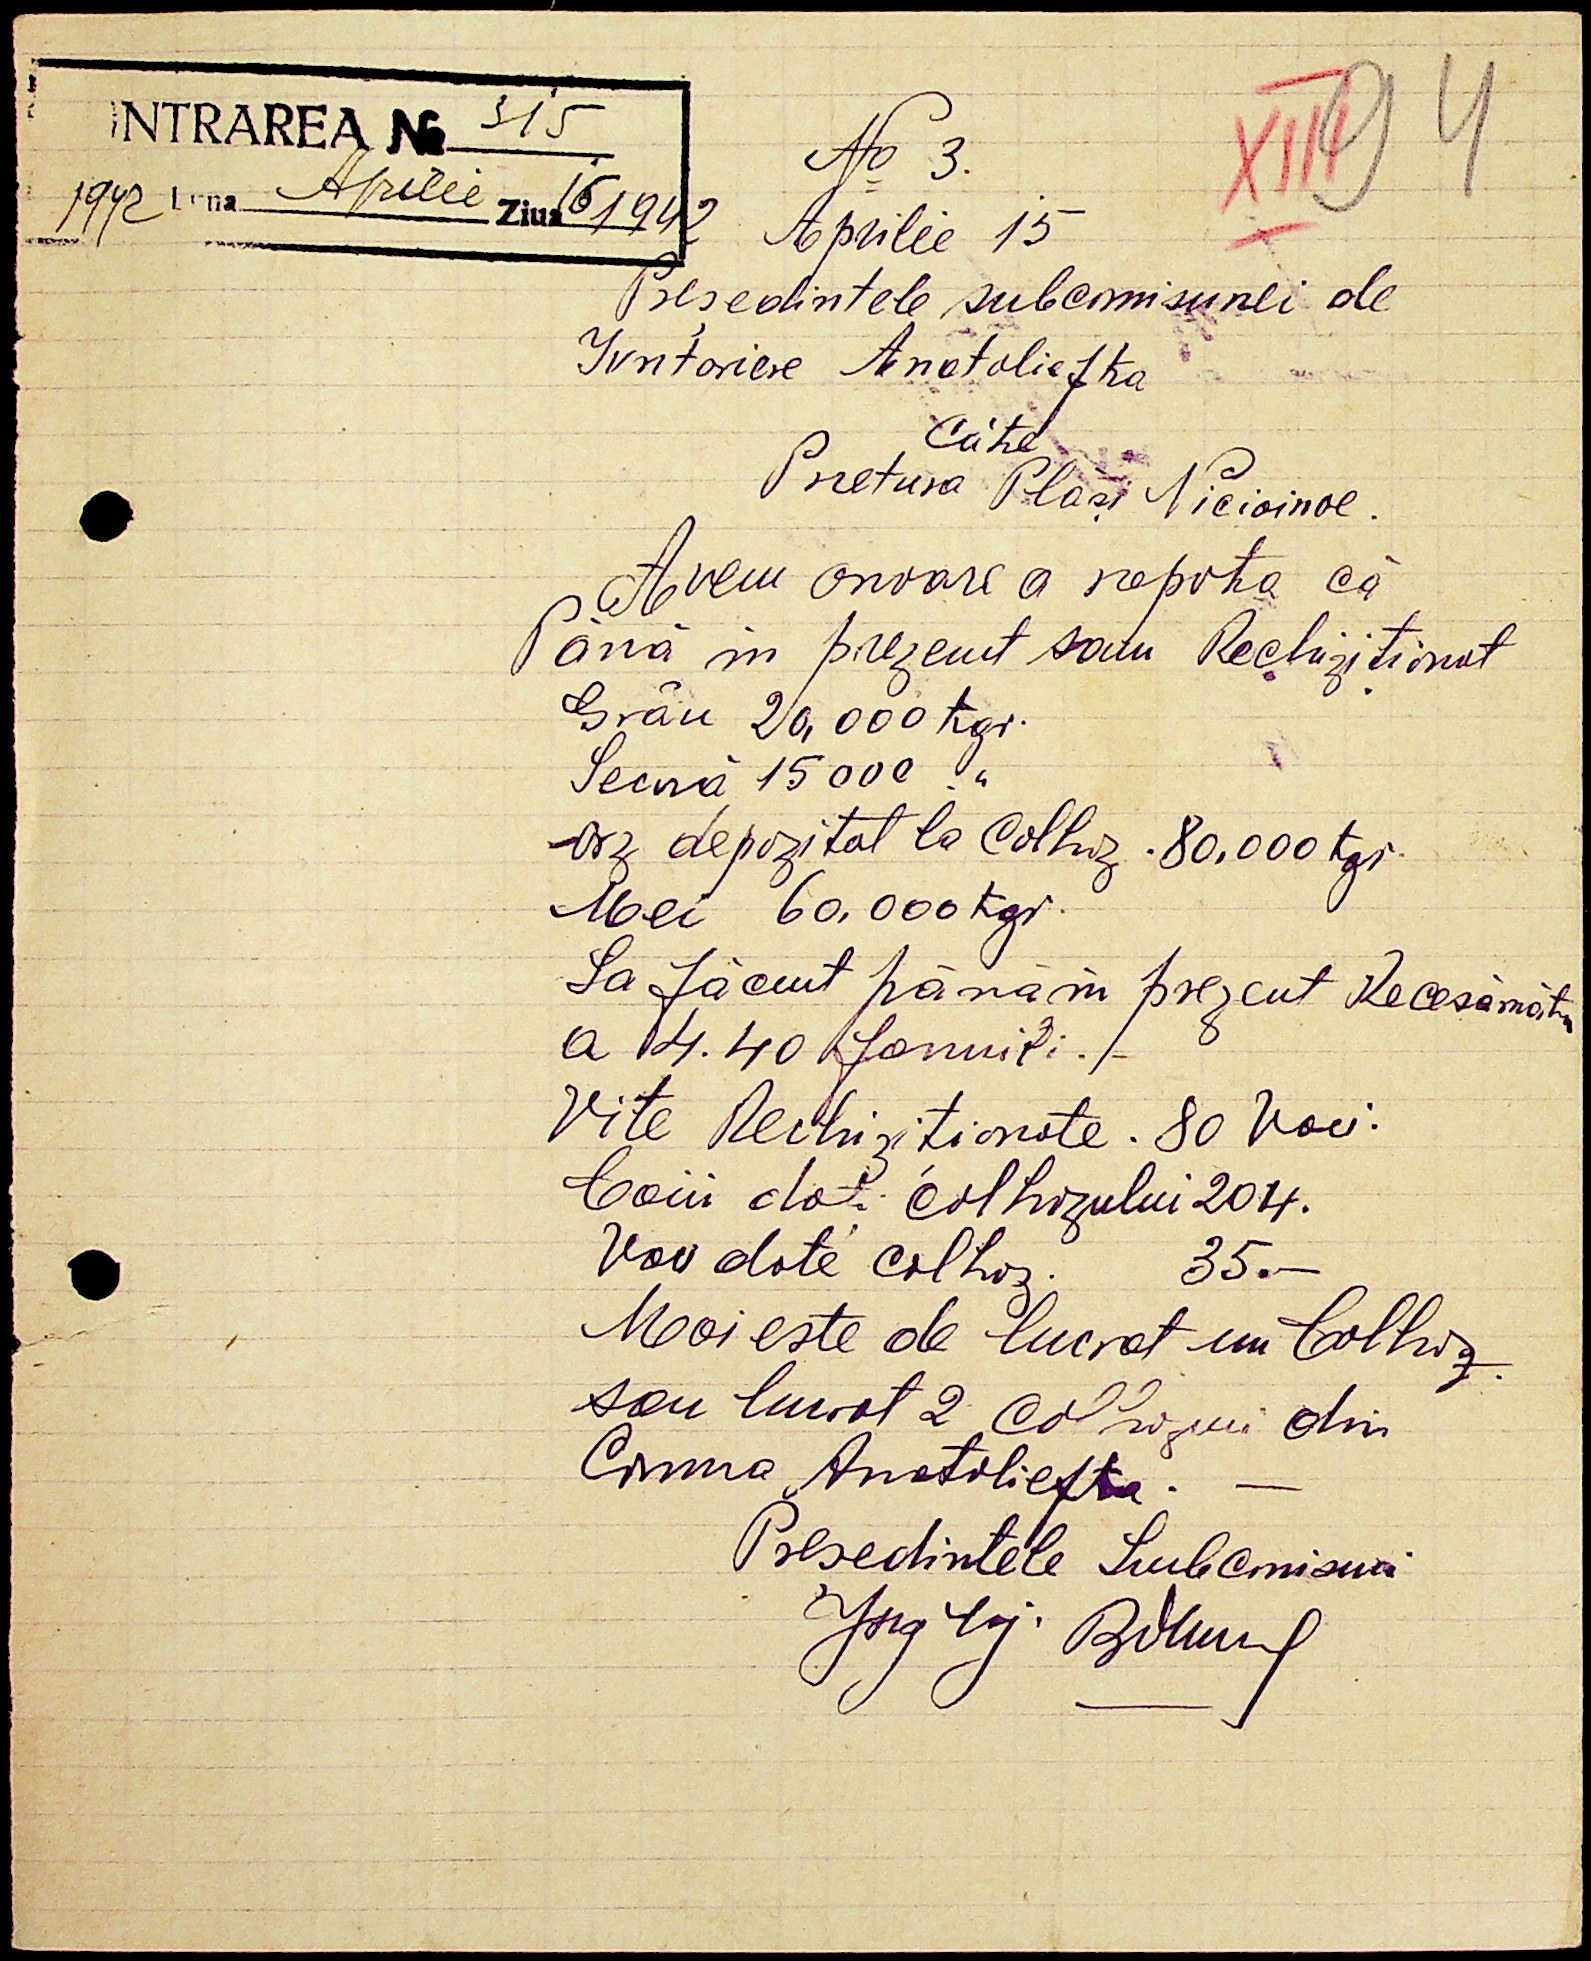 INTRAREA № 315
1942 Luna Aprilie Ziua 16
XIII 94
No 3.
1942 Aprilie 15
Președintele subcomisunei de
Ivntoriere Anatoliefka
Cătră
Pretura Plăși Nicioinoe.
Avem onoare a raporta că
Până in prezent sau Rechiziționat
Grâu 20,000 kgr.
Secară 15000 "
orz depozitat la Colhoz. 80.000 kgr.
Mei 60.000 kgr.
Sa făcut până in prezent
a 14.40 familii./-
Vite Rechiziționate. 80 Vaci.
Caii dați colhozului 204.
Vaci date colhoz. 35.-
Mai este de lucrat un Colhoz.
sau lucrat 2 colhozuri din
Comuna Anatoliefka. —
Președintele Subcomisuni